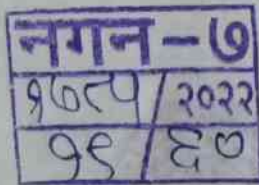 नगन - ७
१७८५ / २०२२
१९ / ६०